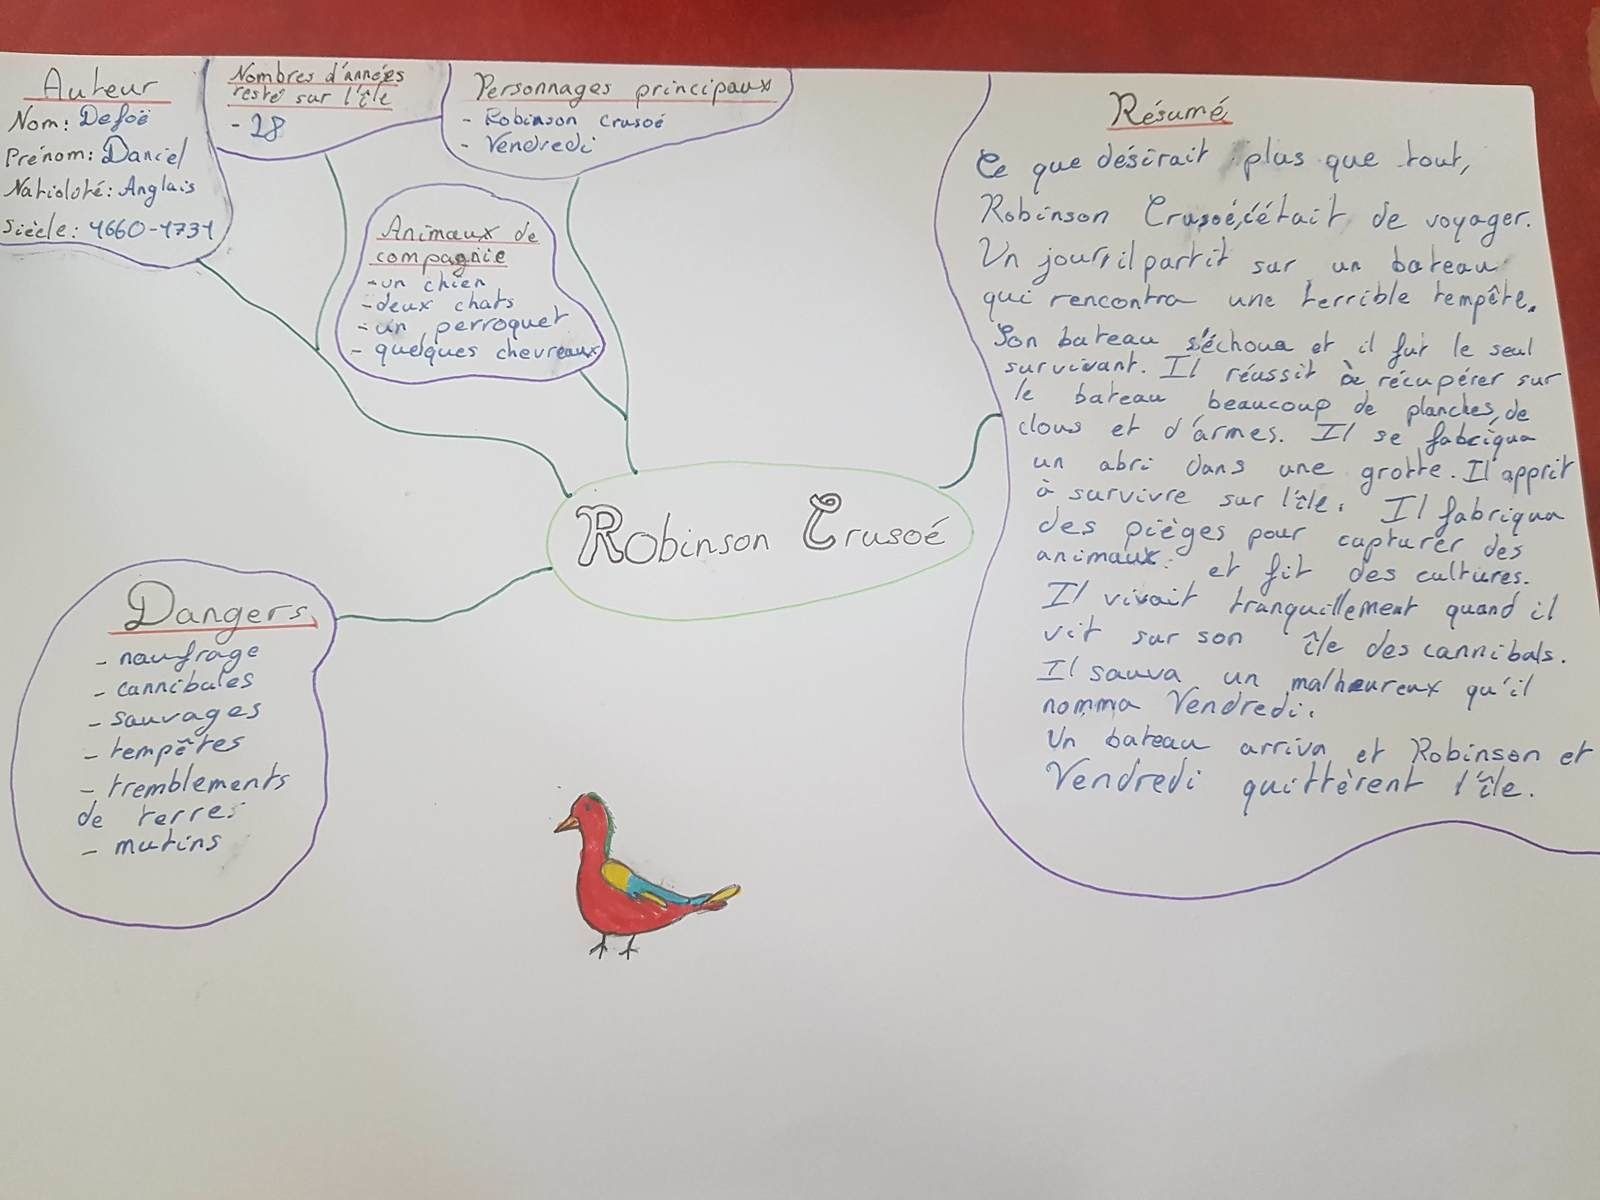 Auteur
Nom: Defoë
Prénom: Daniel
Natioloté: Anglais
Siècle: 1660-1731
Nombres d'années
resté sur l'île
- 28
Personnages principaux
- Robinson Crusoé
- Vendredi
Animaux de
compagnie
- un chien
- deux chats
- un perroquet
- quelques chevreaux
Robinson Crusoé
Dangers
- naufrage
- cannibales
- sauvages
- tempêtes
- tremblements
de terre
- mutins
Résumé
Ce que désirait plus que tout,
Robinson Crusoé, c'était de voyager.
Un jour, il partit sur un bateau
qui rencontra une terrible tempête.
Son bateau s'échoua et il fut le seul
survivant. Il réussit à récupérer sur
le bateau beaucoup de planches, de
clous et d'armes. Il se fabriqua
un abri dans une grotte. Il apprit
à survivre sur l'île. Il fabriqua
des pièges pour capturer des
animaux et fit des cultures.
Il vivait tranquillement quand il
vit sur son île des cannibals.
Il sauva un malheureux qu'il
nomma Vendredi.
Un bateau arriva et Robinson et
Vendredi quittèrent l'île.